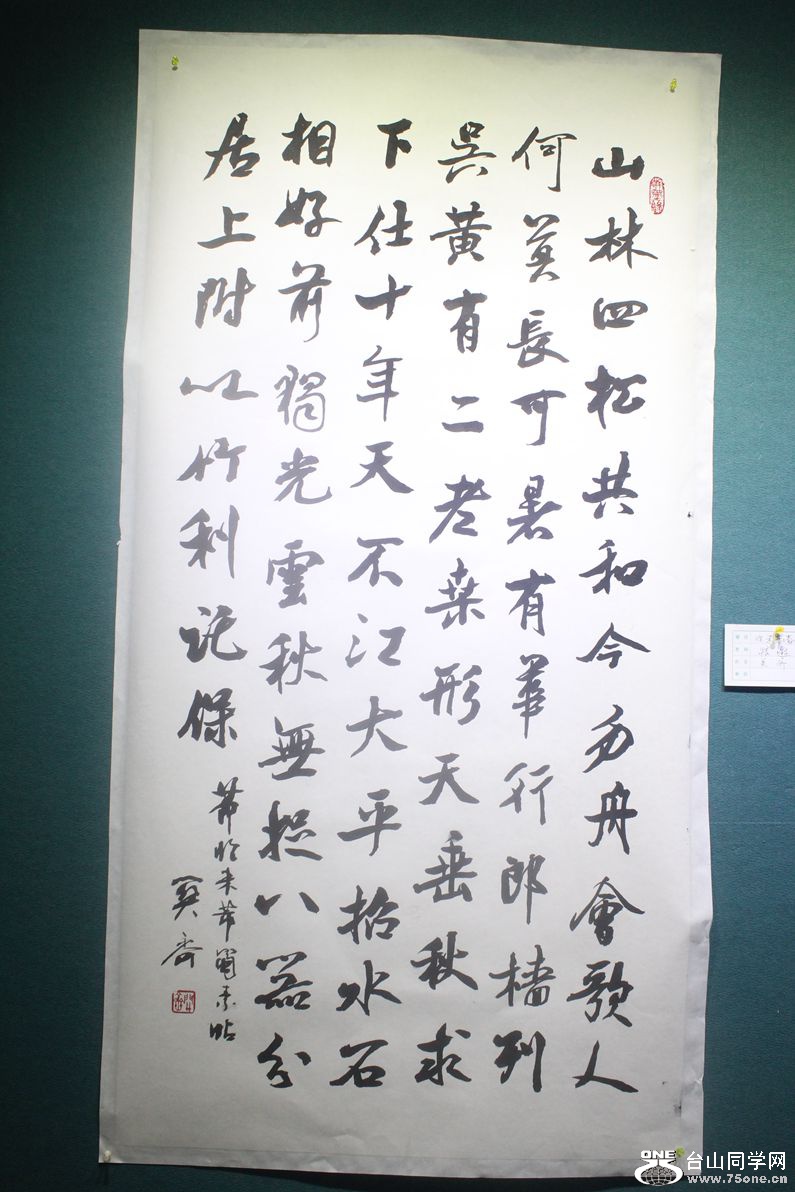 山林四松共和今勿舟會歌人
何異長可暑有華行郎檣列
吳黃有二老桑形天垂秋求
下仕十年天不江大平招水石
相好前獨光雲秋無挹八器分
居上附以竹利記保
節臨米芾蜀素帖
奚齋
ONE 台山同学网
www.75one.cn